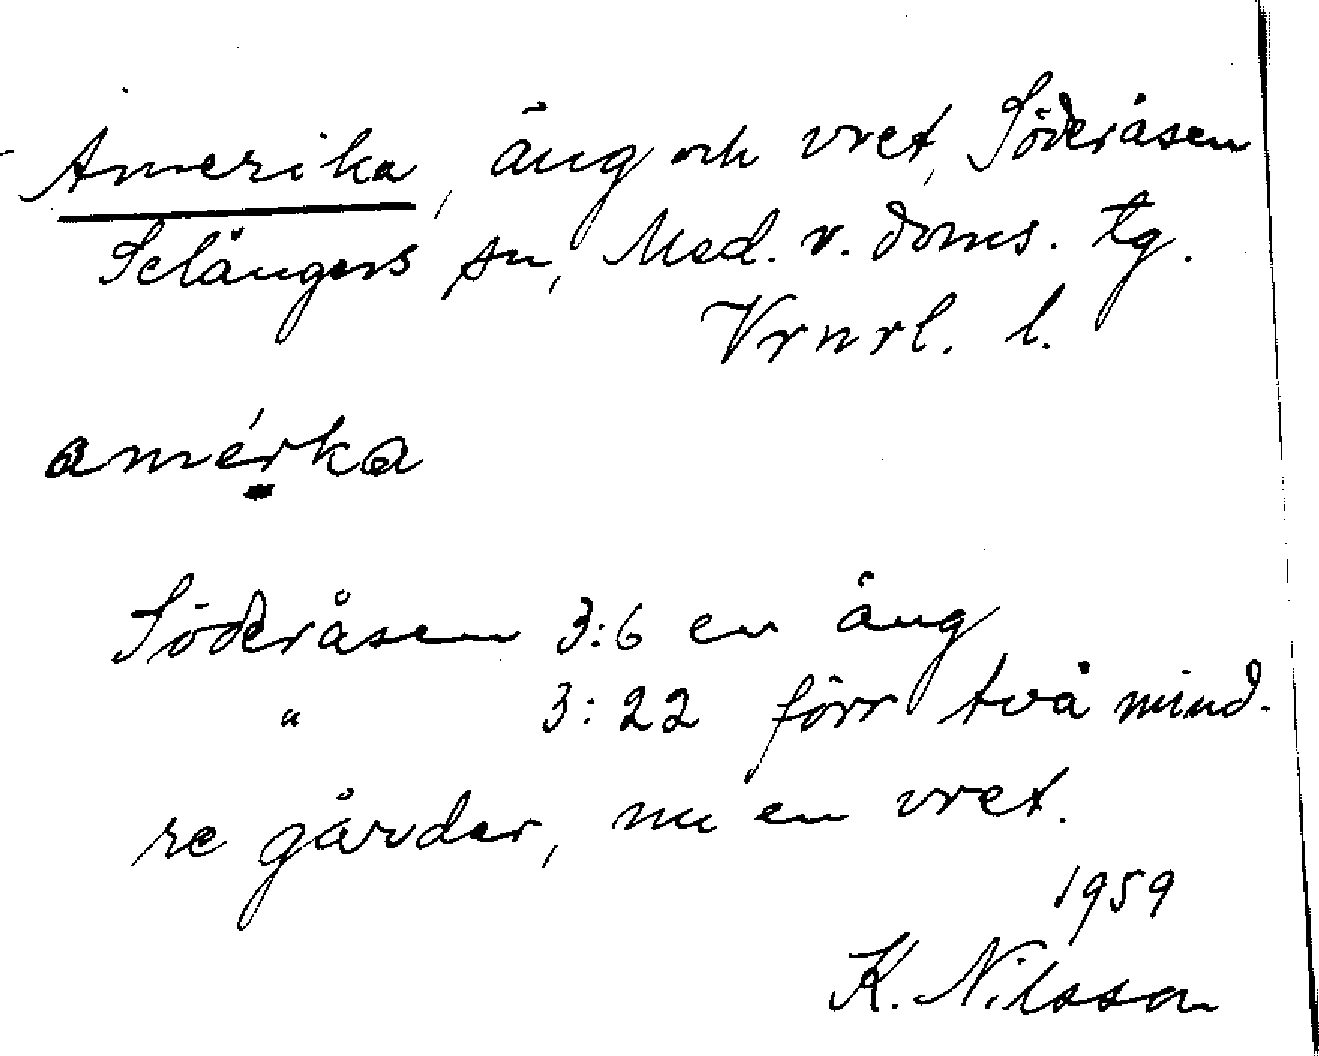 Amerika, äng och vret, Söderåsen
Selångers sn, Med. v. doms. tg.
Vrnrl. l.
amérka
Söderåsen 3:6 en äng
" 3:22 förr två mind-
re gårdar, nu en vret.
1959
K. Nilsson